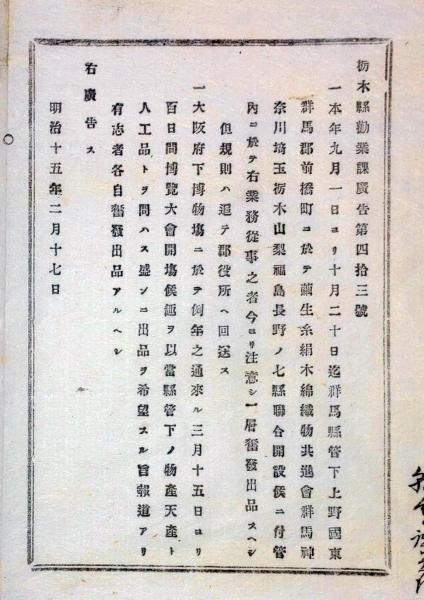 栃木縣勸業課廣告第四拾三號
一本年九月一日ヨリ十月二十日迄群馬縣管下上野國東
群馬郡前橋町ニ於テ繭生糸絹木綿織物共進會群馬神
奈川埼玉栃木山梨福島長野ノ七縣聯合開設候ニ付管
內ニ於テ右業務從事之者今ヨリ注意シ一層奮發出品スヘシ
但規則ハ追テ郡役所ヘ回送ス
一大阪府下博物場ニ於テ例年之通來ル三月十五日ヨリ
百日間博覽大會開塲候趣ヲ以當縣管下ノ物產天產ト
人工品トヲ問ハス盛ンニ出品ヲ希望スル旨報道アリ
有志者各自奮發出品アルヘシ
右廣告ス
明治十五年二月十七日